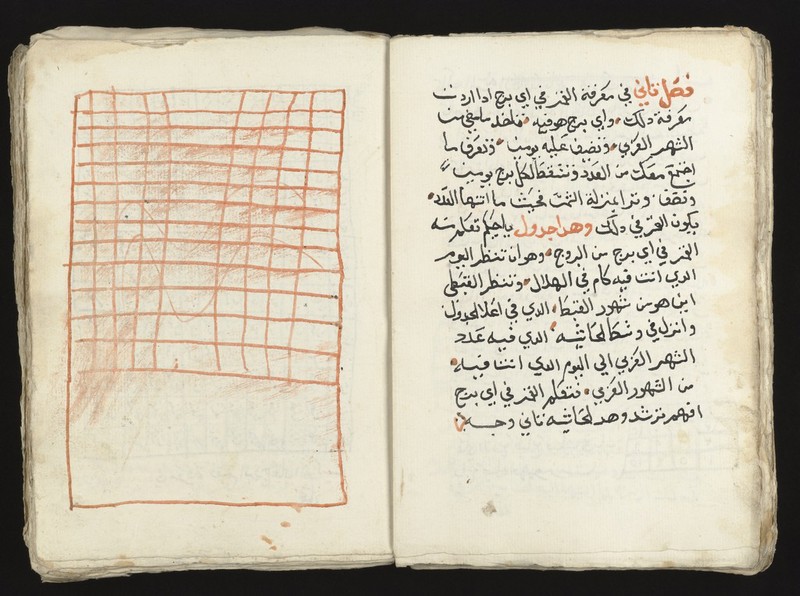 فصل تاني في معرفة القمر في اي برج ادا اردت
معرفة دلك واي برج هو فيه فتاخد ما مضي من
الشهر العربي وتضف عليه يومين وتعرف ما
اجتمع معك من العدد وتسقط لكل برج يومين
ونصف وتبدا منزلة الشمس فحيث ما انتها العدد
يكون القمر في دلك وهدا جدول ياحكم تعلم منه
القمر في اي برج من البروج وهو ان تنظر اليوم
الدي انت فيه كام في الهلال وتنظر القبطي
اين هو من شهور القبط الدي في اعلا الجدول
وانزل في وسط الحاشيه الدي فيه عدد
الشهر العربي الي اليوم الدي انت فيه
من الشهور العربي تتعلم القمر في اي برج
افهم ترشد وهد الحاشيه تاني وجه